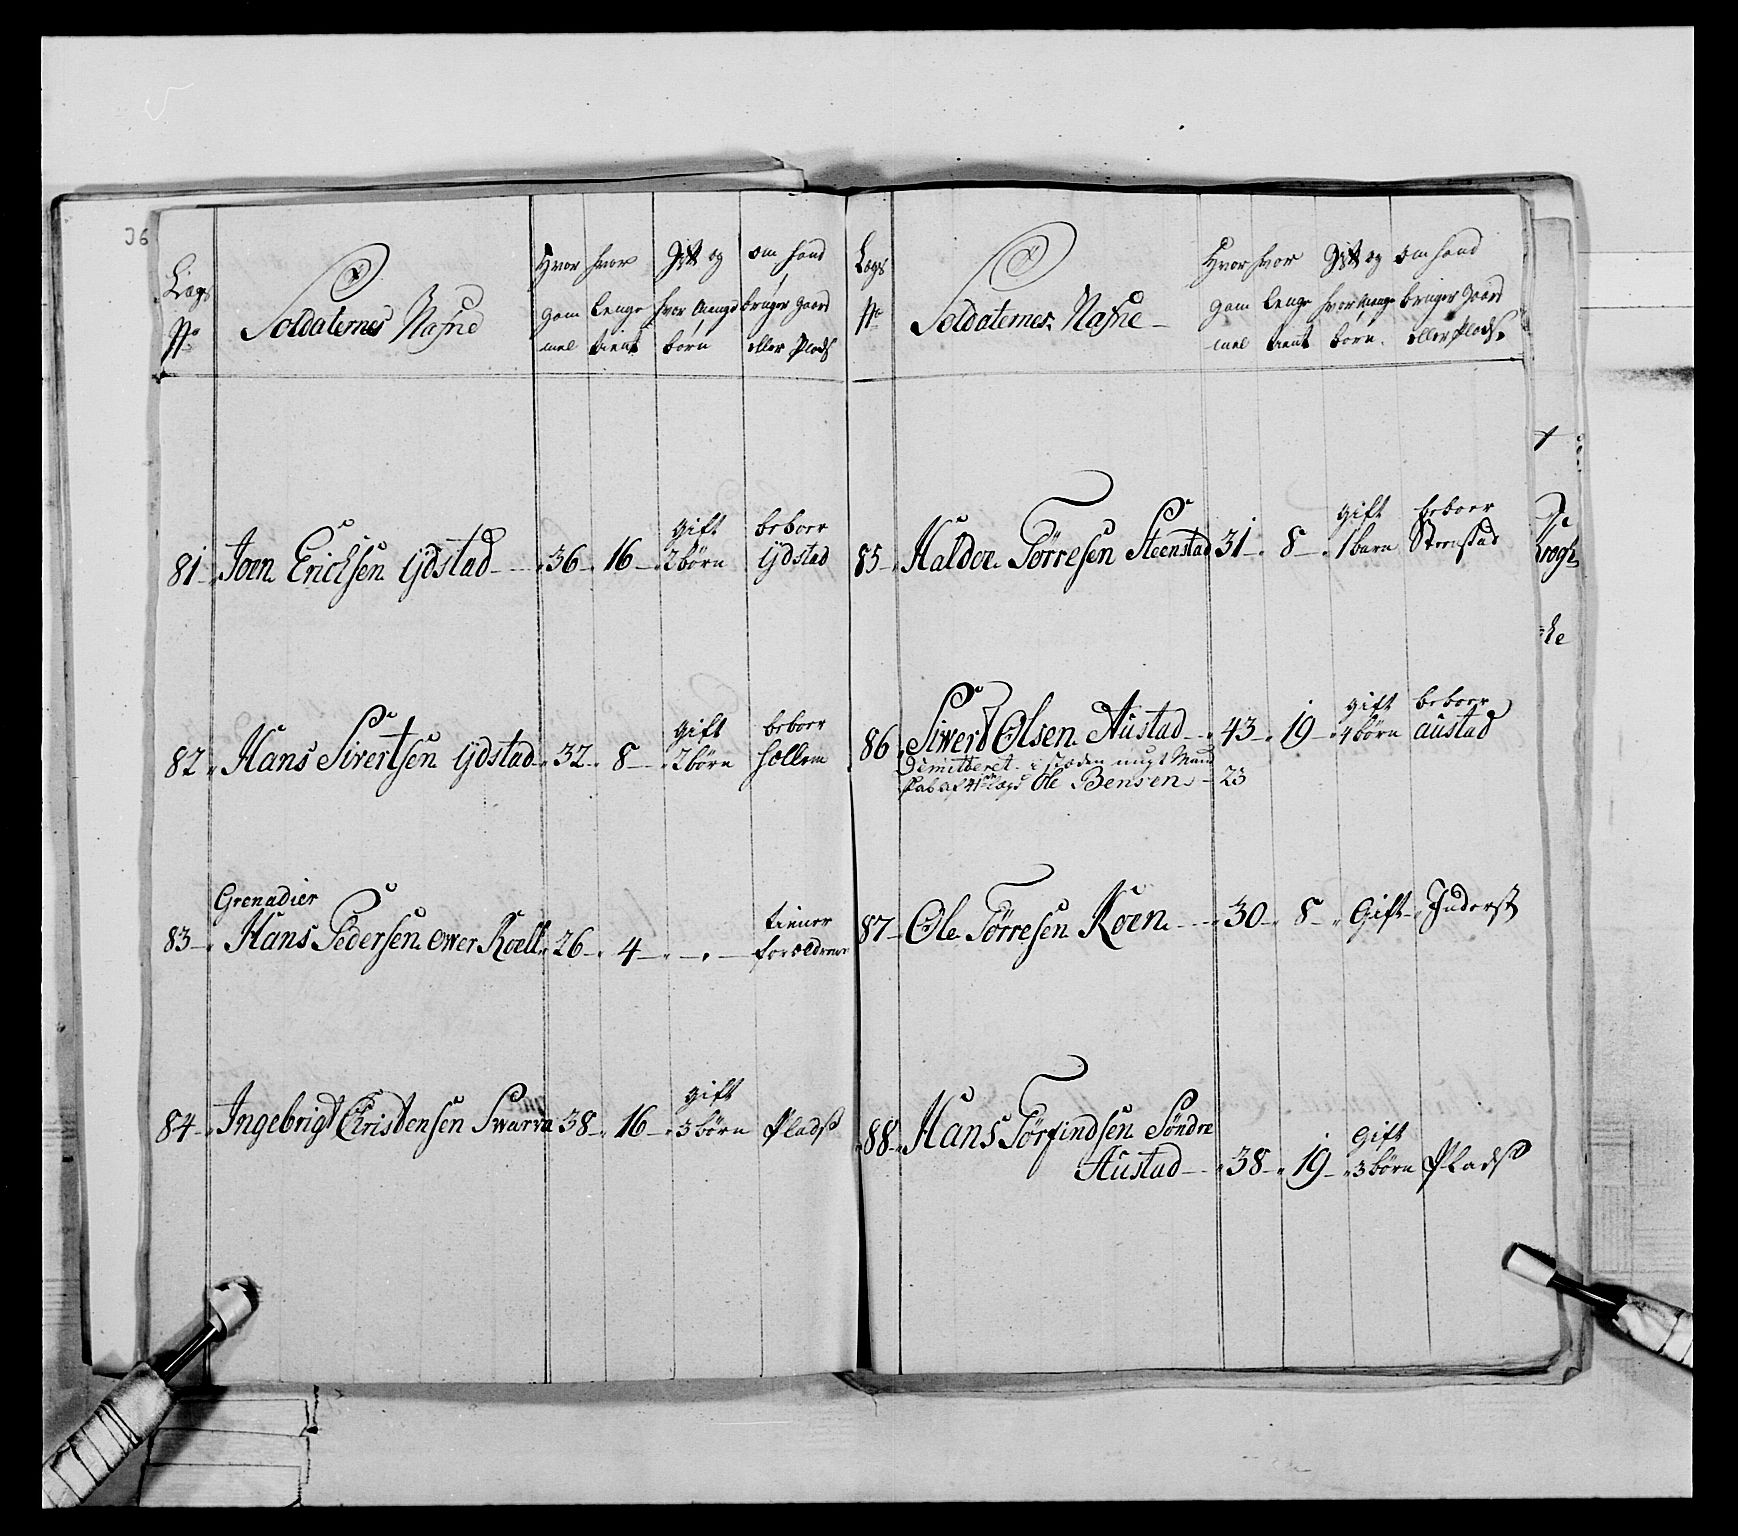 36
Lægs No Soldaternes Nafne Hvor gammel hvor lenge tient Gift og hvor mange børn om hand bruger gaard eller Plads
81 Joen Erichsen Ydstad 36 16 gift 2 børn beboer Ydstad
82 Hans Sivertsen Ydstad 32 8 gift 2 børn beboer hollem
Grenadier
83 Hans Pedersen ower Koell 26 4 tiener forældrene
84 Ingebrigt Christensen Swarva 38 16 gift 3 børn Plads
Lægs No Soldaternes Nafne Hvor gammel hvor lenge tient Gift og hvor mange børn om hand bruger gaard eller Plads
85 Haldor Tørresen Steenstad 31 8 gift 1 barn beboer Steenstad
86 Siwert Olsen Austad 43 19 gift 4 børn beboer austad
Dimitteret i stæden nugt Mand
skab af 41de lægd Ole Bensen 23
87 Ole Tørresen Koen 30 8 Gift Inderst
88 Hans Tørfindsen Søndre
Austad 38 19 Gift 3 børn Plads